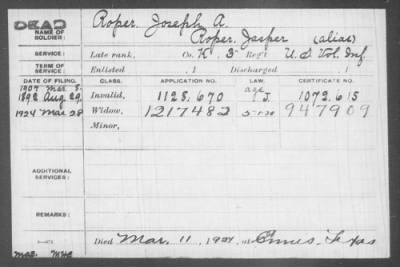 DEAD
NAME OF SOLDIER: Roper, Joseph A.
Roper, Jasper (alias)
SERVICE: Late rank, Co. K 3 Reg't U.S. Vol. Inf.
TERM OF SERVICE: Enlisted , 1 Discharged , 1
DATE OF FILING. CLASS. APPLICATION NO. LAW. CERTIFICATE NO.
1907 Mar
1892 Aug 29 Invalid, 1128,670 age J. 1072,615
1924 Mar 28 Widow, 1217482 5-1-20 947909
Minor,
ADDITIONAL SERVICES:
REMARKS:
Died Mar. 11, 1924, at Ennis, Texas